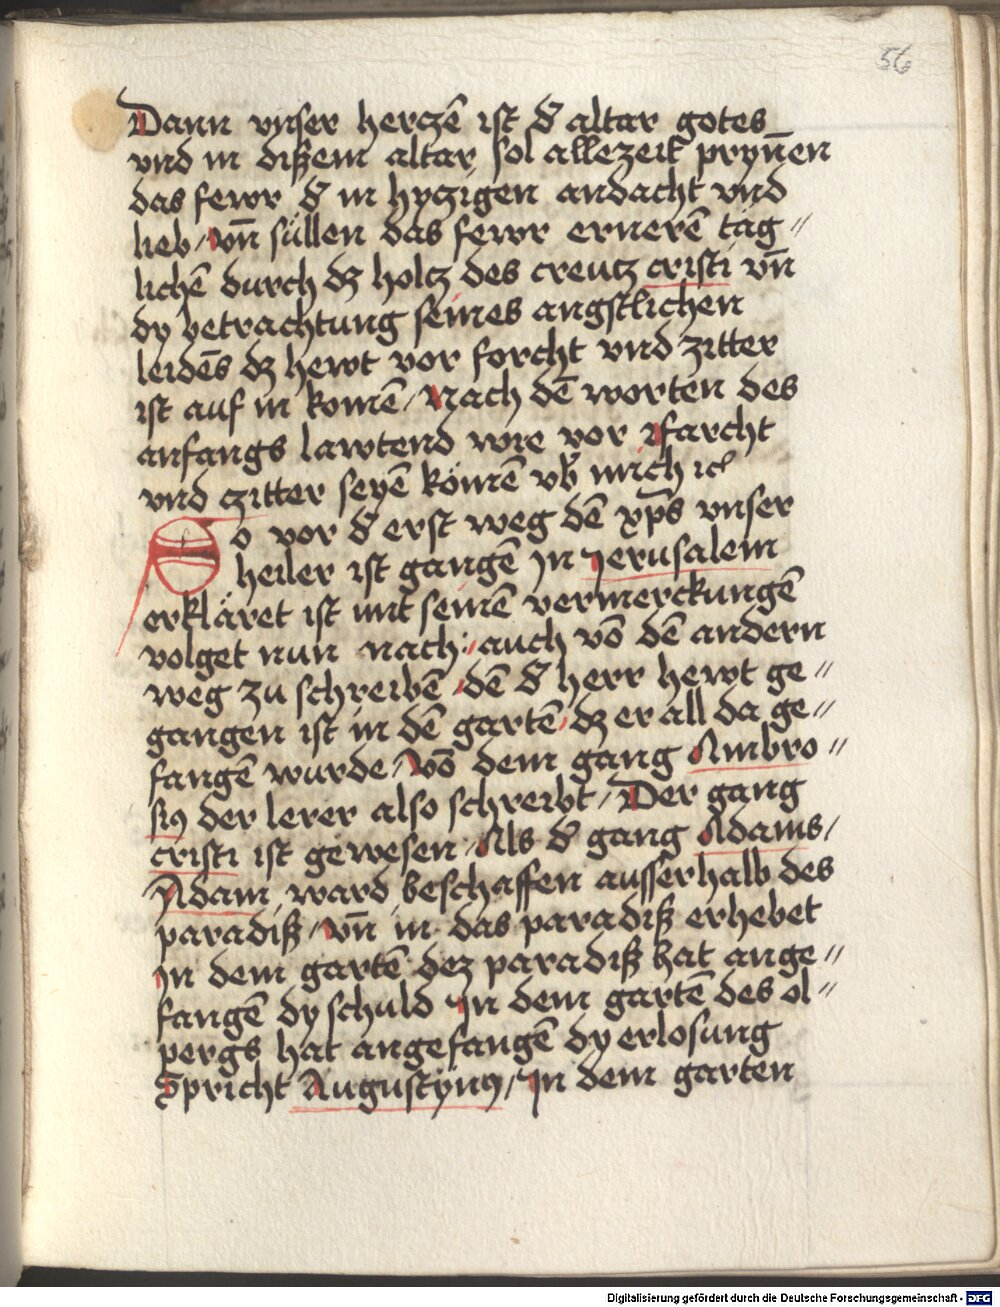 56
Dann vnser herczē ist d̄ altar gotes
vnd in dißem altar sol allezeit pryn̄en
das fewr d̄ in hyczigen andacht vnd
lieb / vn̄ süllen das fewr ernerē täg〃
lichē durch dz holtz des creutz cristi vn̄
dy betrachtung seines angstlichen
leidēs dz hewt vor forcht vnd zitter
ist auf in komē / Nach dē worten des
anfangs lawtend wie vor ist farcht
vnd czitter seyē kömē vb̄ mich ꝛc
So vor d̄ erst weg dē xp̄s vnser
heiler ist gangē Jn Jerusalem
erkläret ist mit seinē vermerckungē
volget nun nach / auch vō dē andern
weg zu schreibē / dē d̄ herr hewt ge〃
gangen ist in dē gartē / dz er all da ge〃
fangē wurde / Vō dem gang Ambro〃
siꝯ der lerer also schreibt / Der gang
cristi ist gewesen / Als d̄ gang Adams /
Adam ward beschaffen ausserhalb des
paradiß / vn̄ in das paradiß erhebet
Jn dem gartē dez paradiß hat ange〃
fangē dy schuld Jn dem gartē des ol〃
pergs hat angefangē dy erlosung
Spricht Augustynꝯ / Jn dem garten
Digitalisierung gefördert durch die Deutsche Forschungsgemeinschaft - DFG